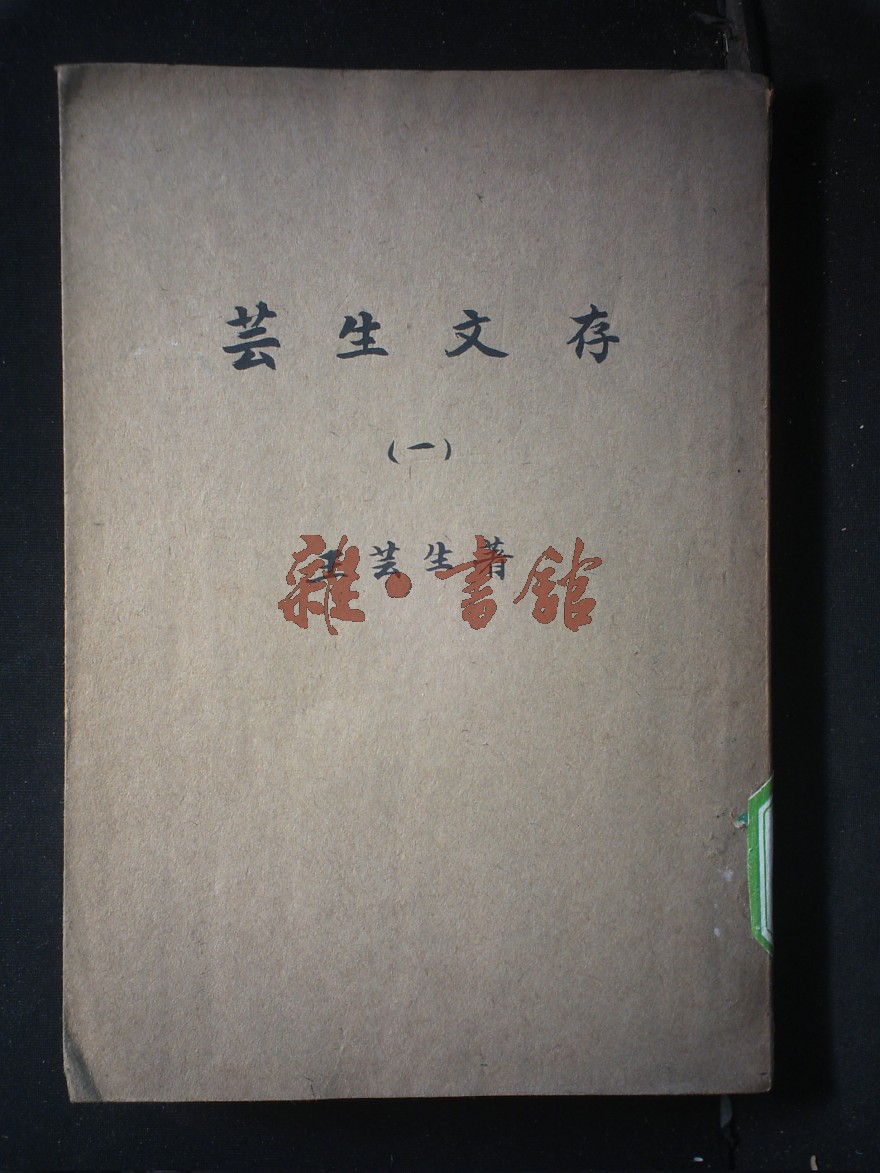 芸生文存
(一)
王芸生著
雜·書館